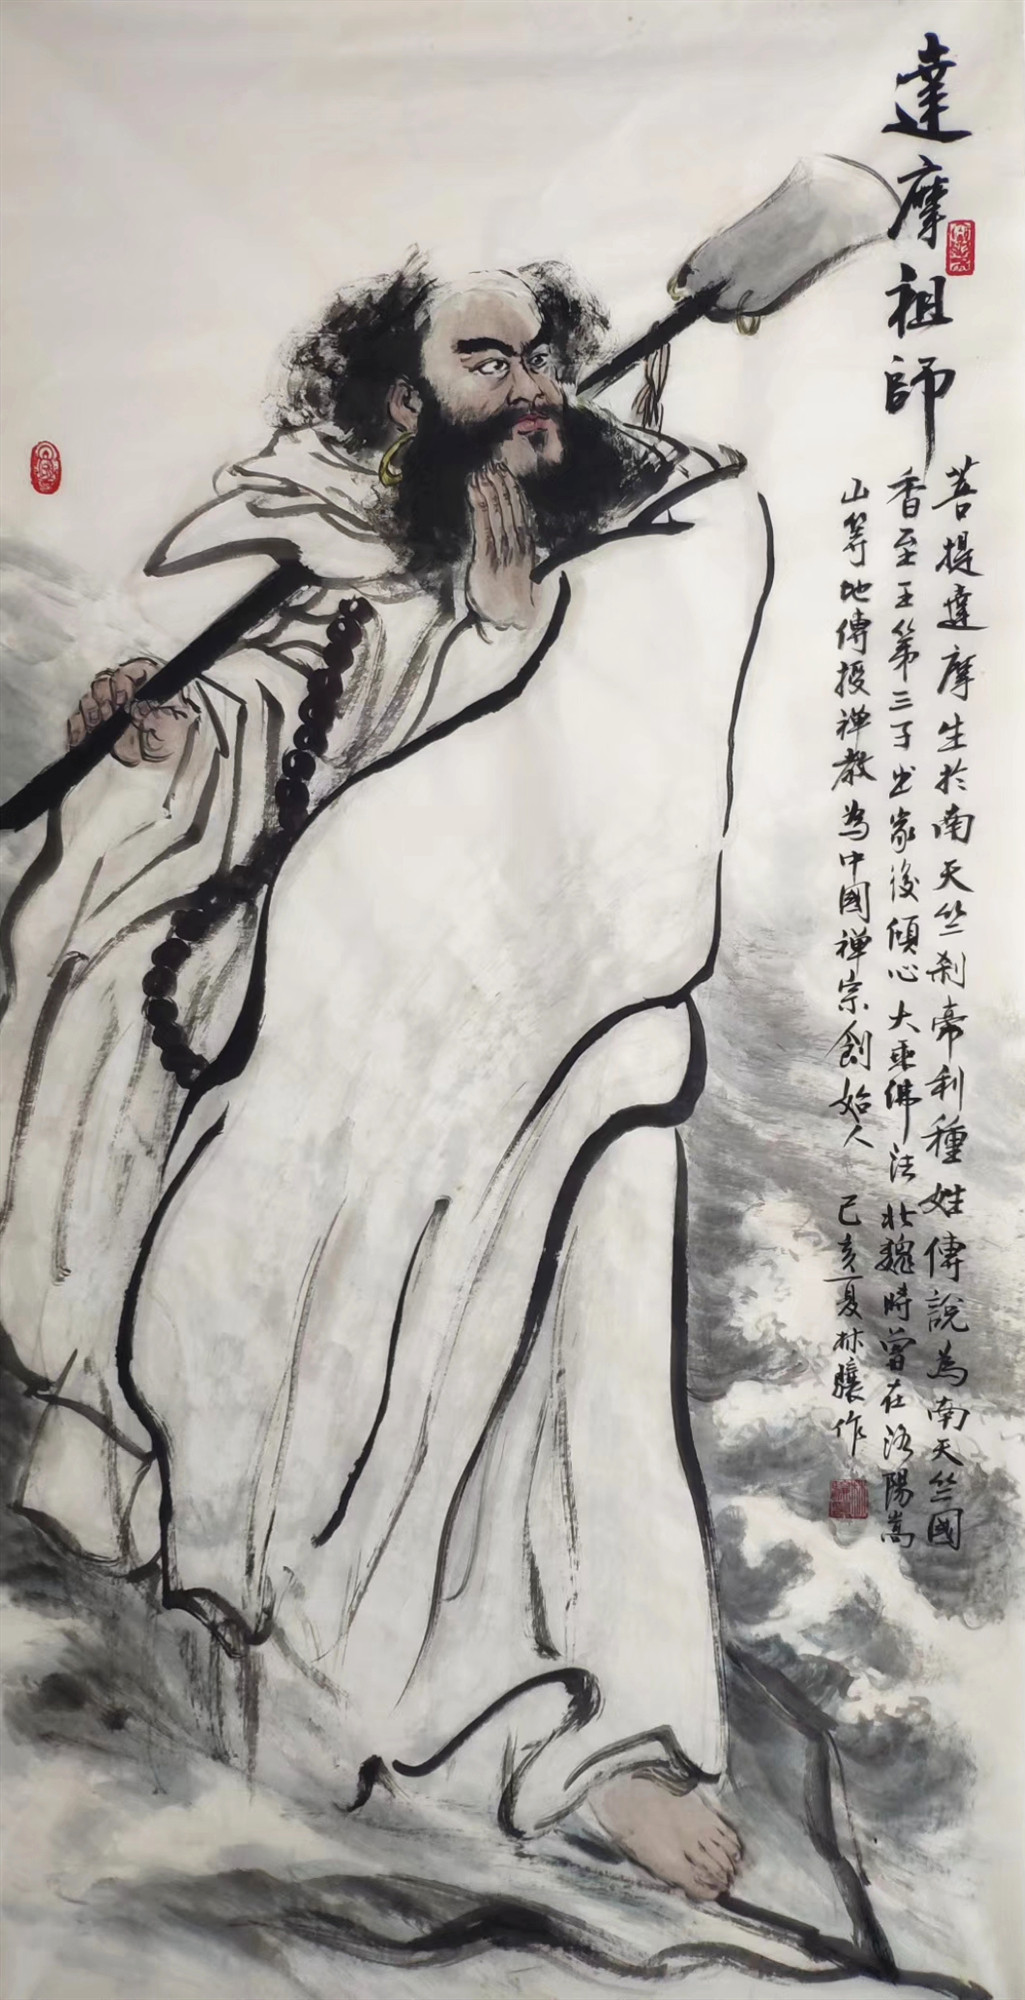 達摩祖師
菩提達摩生於南天竺刹帝利種姓傳說為南天竺國
香至王第三子出家後傾心大乘佛法北魏時曾在洛陽嵩
山等地傳授禅教為中國禅宗創始人 己亥夏林驤作